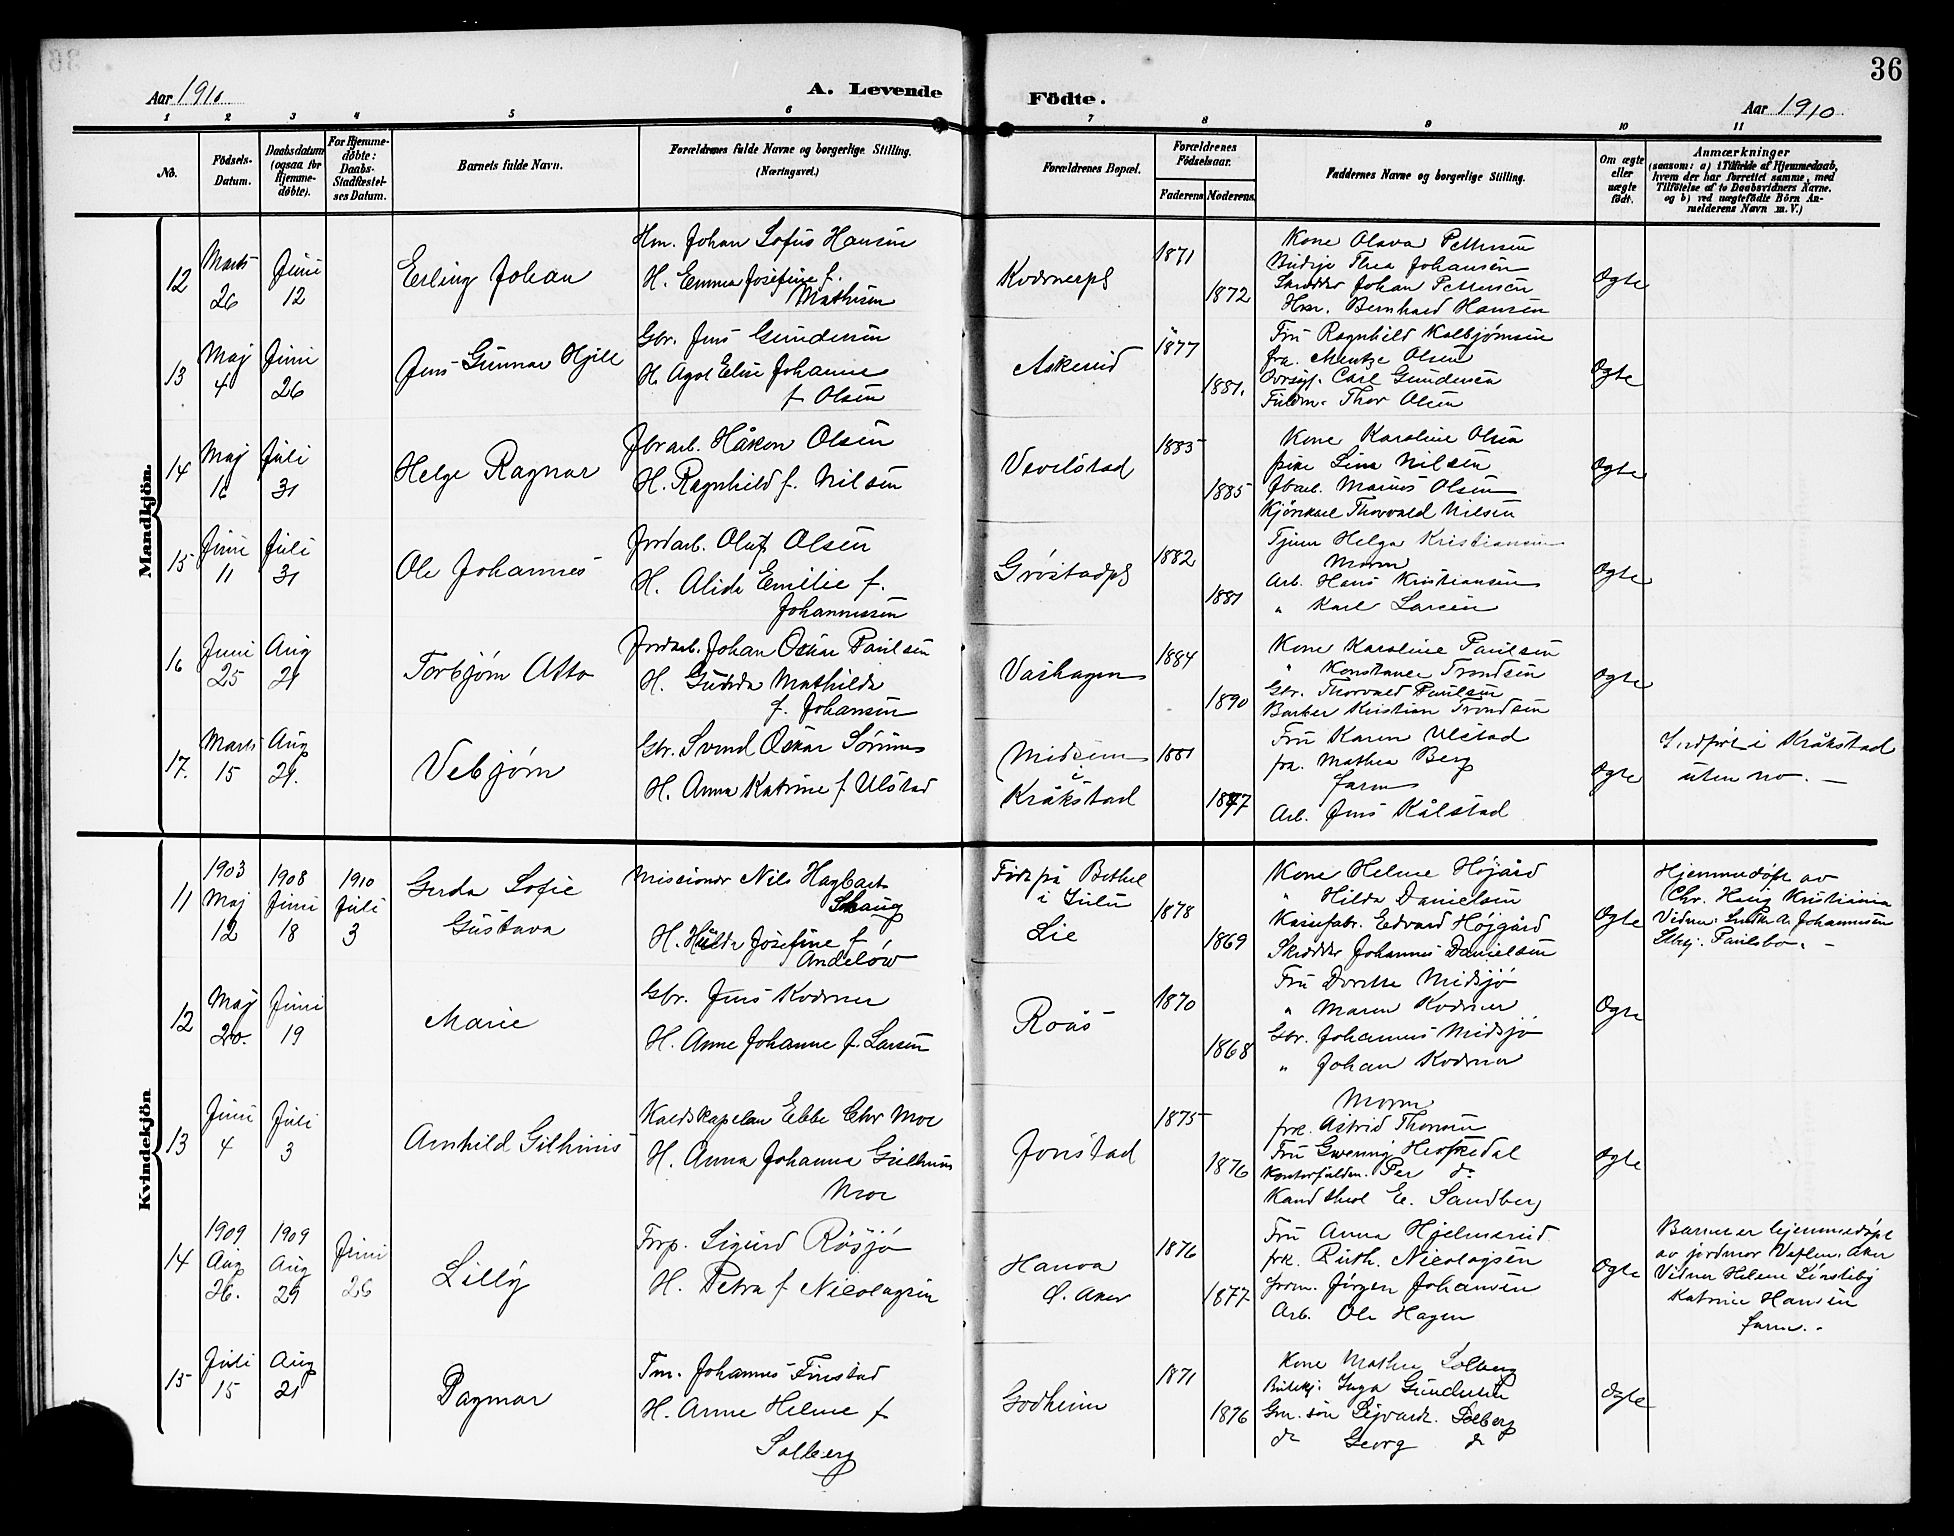 36
Aar 1910
A. Levende
Födte.
Aar 1910
1 2 3 4 5 6 7 8 9 10 11
No.
Födsels-Datum.
Daabsdatum (ogsaa for Hjemme-døbte).
For Hjemme-døbte: Daabs-Stadfæstel-ses Datum.
Barnets fulde Navn.
Forældrenes fulde Navne og borgerlige Stilling. (Næringsvei.)
Forældrenes Bopæl.
Forældrenes Födselsaar.
Faderens Moderens
Faddernes Navne og borgerlige Stilling.
Om ægte eller uægte födt.
Anmærkninger
(saasom: a) i Tilfælde af Hjemmedaab, hvem der har forrettet samme, med Tilføielse af to Daabsvidners Navne, og b) ved uægtefödte Börn An-melderens Navn m.V.)
Mandkjön.
12
Marts 26
Juni 12
Erling Johan
Hm. Johan Sofus Hansen
H. Emma Josefine f. Mathisen
Kodrneepl
1871
1872
Kone Olava Pettersen
Thea Johansen
Skrædder Johan Pettersen
Hm. Bernhard Hansen
Ogte
13
Maj 4
Juni 26
Jens Gunnar Hjell
Gbr. Jens Gundersen
H. Agot Elise Johanne
f Olsen
Askerud
1877
1881.
Fru Ragnhild Kolbjørnsen
frk. Mentze Olsen
Carl Gundersen
Fuldm. Thor Olsen
Ogte
14
Maj 16
Juli 31
Helge Ragnar
Jbrarb. Håkon Olsen
H. Ragnhild f. Nilsen
Vevelstad
1883
1885
Kone Karoline Olsen
pike Lina Nilsen
Jbrarb. Marius Olsen
Kjørekarl Thorvald Nilsen
Ogte
15
Juni 11
Juli 31
Ole Johannes
Jordarb. Oluf Olsen
H. Alida Emilie f.
Johannessen
Grøstadpl
1882
1881
Tjen Helga Kristiansen
Moren
Arb. Hans Kristiansen
" Karl Larsen
Ogte
16
Juni 25
Aug 21
Torbjørn Otto
Jordarb. Johan Oskar Paulsen
H. Gudda Mathilde
f. Johansen
Vashagen
1884
1890
Kone Karoline Paulsen
" Konstance Trondsen
Gbr. Thorvald Paulsen
Banker Kristian Trondsen
Ogte
17.
Marts 15
Aug 21.
Vebjørn
Gbr. Svend Oskar Sørum
H. Anna Katrine f Ulstad
Midsem
i
Kråkstad
1881
1877
Fru Karen Ulstad
frk. Mathea Berg
faren
Arb. Jens Kålstad
Ogte
Indført i Kråkstad
uten no. –
Kvindekjön
11
1903 Maj 12
1908 Juni 18
1910 Juli 3
Gerda Sofie
Gustava
Missionær Nils Hagbart
Skaug
H. Hulda Josefine f
Andelöw
Født på Bethel
i Zulu
Lie
1878
1869
Kone Helene Höjård
" Hilda Danielsen
Kassefabr. Edvard Højgård
Skrædder Johannes Danielsen
Ogte
Hjemmedøpt av
Chr. Haug Kristiania
Vidner: A. Johannesen
Paulsbo. –
12
Maj 20.
Juni 19
Marie
Gbr. Jens Kodrner
H. Anne Johanne f. Larsen
Roås
1870
1868
Fru Dorthe Midsjö
" Maren Kodrner
Gbr. Johannes Midsjö
" Johan Kodrner
Ogte
13
Juni 4
Juli 3
Arnhild Gilhuus
Kaldskapelan Ebbe Chr Moe
H. Anna Johanna Gilhuus
Moe
Jonstad
1875
1876
Moren
frk. Astrid Thorsen
Fru Gwening Herspedal
Kontorfuldm. Per do
Kand theol E. Sandberg
Ogte
14
1909 Aug 26.
1909 Aug 29
Juni 26
Lilly
Forp. Sigurd Røsjø
H. Petra f Nicolaysen
Hanoa
Ø. Aker
1876
1877
Fru Anna Hjelmerud
frk. Ruth Nicolajsen
form. Jørgen Johansen
Arb. Ole Hagen
Ogte
Barnet er hjemmedøpt
av jordmor Aker
Vidner Helene
Katrine Hansen
faren. –
15
Juli 15
Aug 21
Dagmar
Tm. Johannes Finstad
H. Anne Helene f
Solberg
Godheim
1871
1876
Kone Mathea Solberg
Inga Gundersen
Gm. søn Sigvard Solberg
do Georg do
Ogte